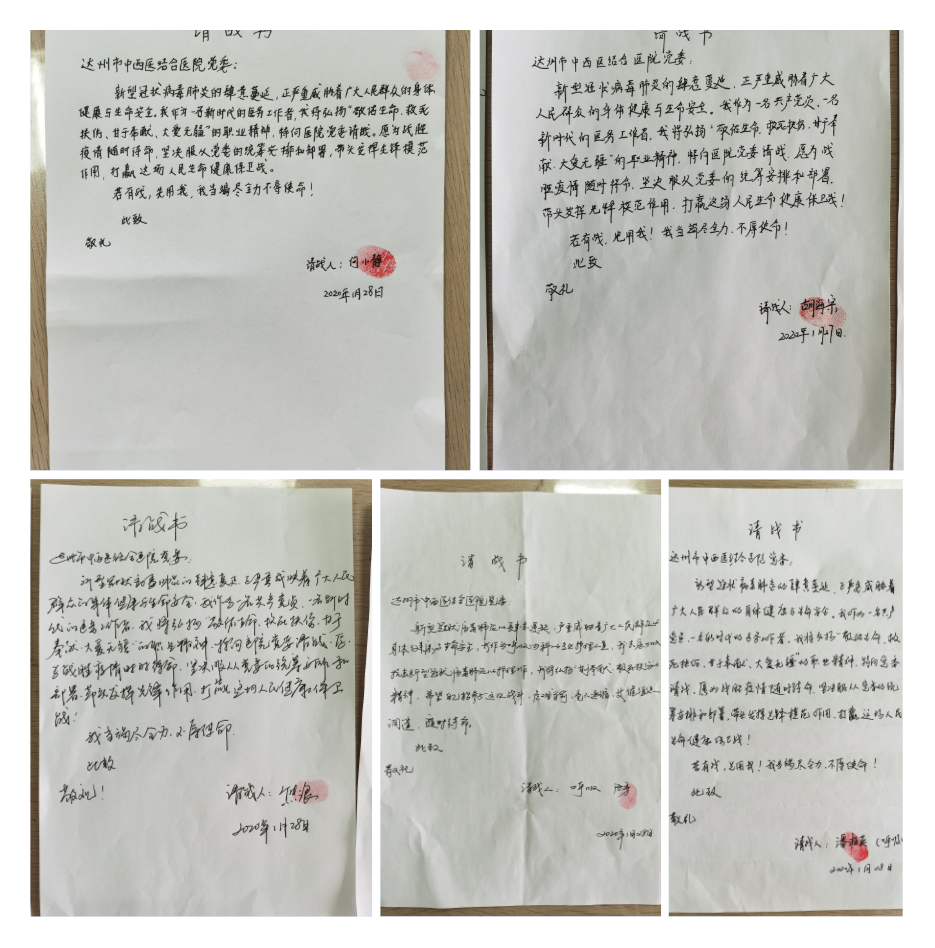 请战书
达州市中西医结合医院党委：
新型冠状病毒肺炎的肆意蔓延，正严重威胁着广大人民群众的身体
健康与生命安全。我作为一名新时代的医务工作者，我将弘扬“敬佑生命，救死
扶伤、甘于奉献、大爱无疆”的职业精神，特向医院党委请战。愿为战胜
疫情随时待命，坚决服从党委的统筹安排和部署，带头发挥先锋模范
作用，打赢这场人民生命健康保卫战。
若有战，先用我，我当竭尽全力不辱使命！
此致
敬礼
请战人：何小静
2020年1月28日
请战书
达州市中西医结合医院党委：
新型冠状病毒肺炎的肆意蔓延，正严重威胁着广大
人民群众的身体健康与生命安全。我作为一名共产党员、一名
新时代的医务工作者，我将弘扬“敬佑生命，救死扶伤，甘于奉
献，大爱无疆”的职业精神，特向医院党委请战，愿为战
胜疫情随时待命，坚决服从党委的统筹安排和部署，
带头发挥先锋模范作用，打赢这场人民生命健康保卫战！
若有战，先用我！我当竭尽全力，不辱使命！
此致
敬礼
请战人：胡海
2020年1月27日.
请战书
达州市中西医结合医院党委：
新型冠状病毒肺炎的肆意蔓延，正严重威胁着广大人民
群众的身体健康与生命安全，我作为一名共产党员，一名新时
代的医务工作者，我将弘扬“敬佑生命，救死扶伤，甘于
奉献，大爱无疆”的职业精神，特向医院党委请战，愿
为战胜疫情随时待命，坚决服从党委的统筹安排和
部署，带头发挥先锋作用，打赢这场人民健康保卫
战！
我当竭尽全力，不辱使命.
此致
敬礼！
请战人：
2020年1月28日
请战书
达州市中西医结合医院党委：
新型冠状病毒肺炎的肆意蔓延，严重威胁着广大人民群众的
身体健康与生命安全，我作为呼吸内科的一名护理人员，我
精神，希望能
随时待命。
此致
敬礼
请战人：呼吸
2020年1月28日
请战书
达州市中西医结合医院党委：
新型冠状病毒肺炎的肆意蔓延，正严重威胁着
广大人民群众的身体健康与生命安全。我作为一名共产
党员、一名新时代的医务工作者，我将弘扬“敬佑生命，救
死扶伤，甘于奉献，大爱无疆”的职业精神，特向党委
请战，愿为战胜疫情随时待命，坚决服从党委的统
筹安排和部署，带头发挥先锋模范作用，打赢这场人民
生命健康保卫战！
若有战，先用我！我当竭尽全力，不辱使命！
此致
敬礼
请战人：潘 英（呼吸
2020年1月28日